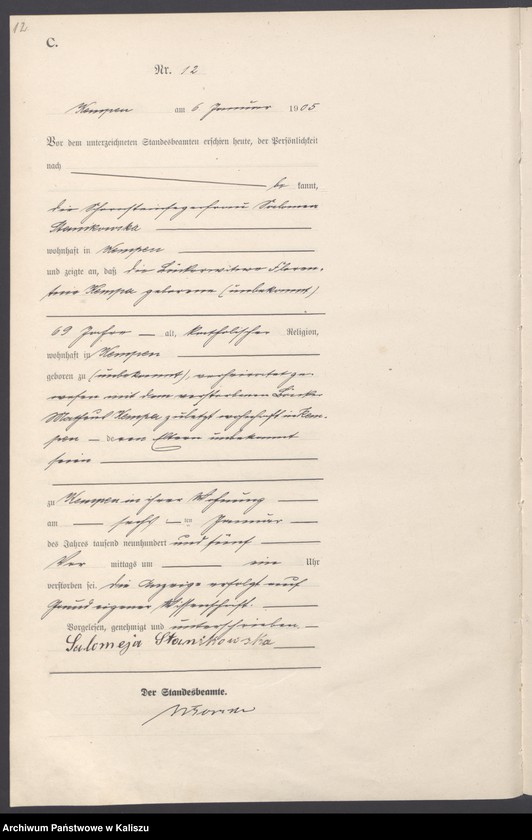 12
C.
Nr. 12
Kempen am 6 Januar 1905
Vor dem unterzeichneten Standesbeamten erschien heute, der Persönlichkeit
nach
be kannt,
die Schornsteinfegerfrau Salomea
Stanikowska
wohnhaft in Kempen
und zeigte an, daß die Bäckerwitwe Floren-
tine Kempa geborene (unbekannt)
69 Jahre alt, katholischer Religion,
wohnhaft in Kempen
geboren zu (unbekannt), verheiratet ge-
wesen mit dem verstorbenen Bäcker
Matheus Kempa zuletzt wohnhaft in Kem-
pen – deren Eltern unbekannt
seien
zu Kempen in ihrer Wohnung
am sechsten Januar
des Jahres tausend neunhundert und fünf
Vor mittags um ein Uhr
verstorben sei. Die Anzeige erfolgt auf
Grund eigener Wissenschaft.
Vorgelesen, genehmigt und unterschrieben
Salomeja Stanikowska
Der Standesbeamte.
Archiwum Państwowe w Kaliszu